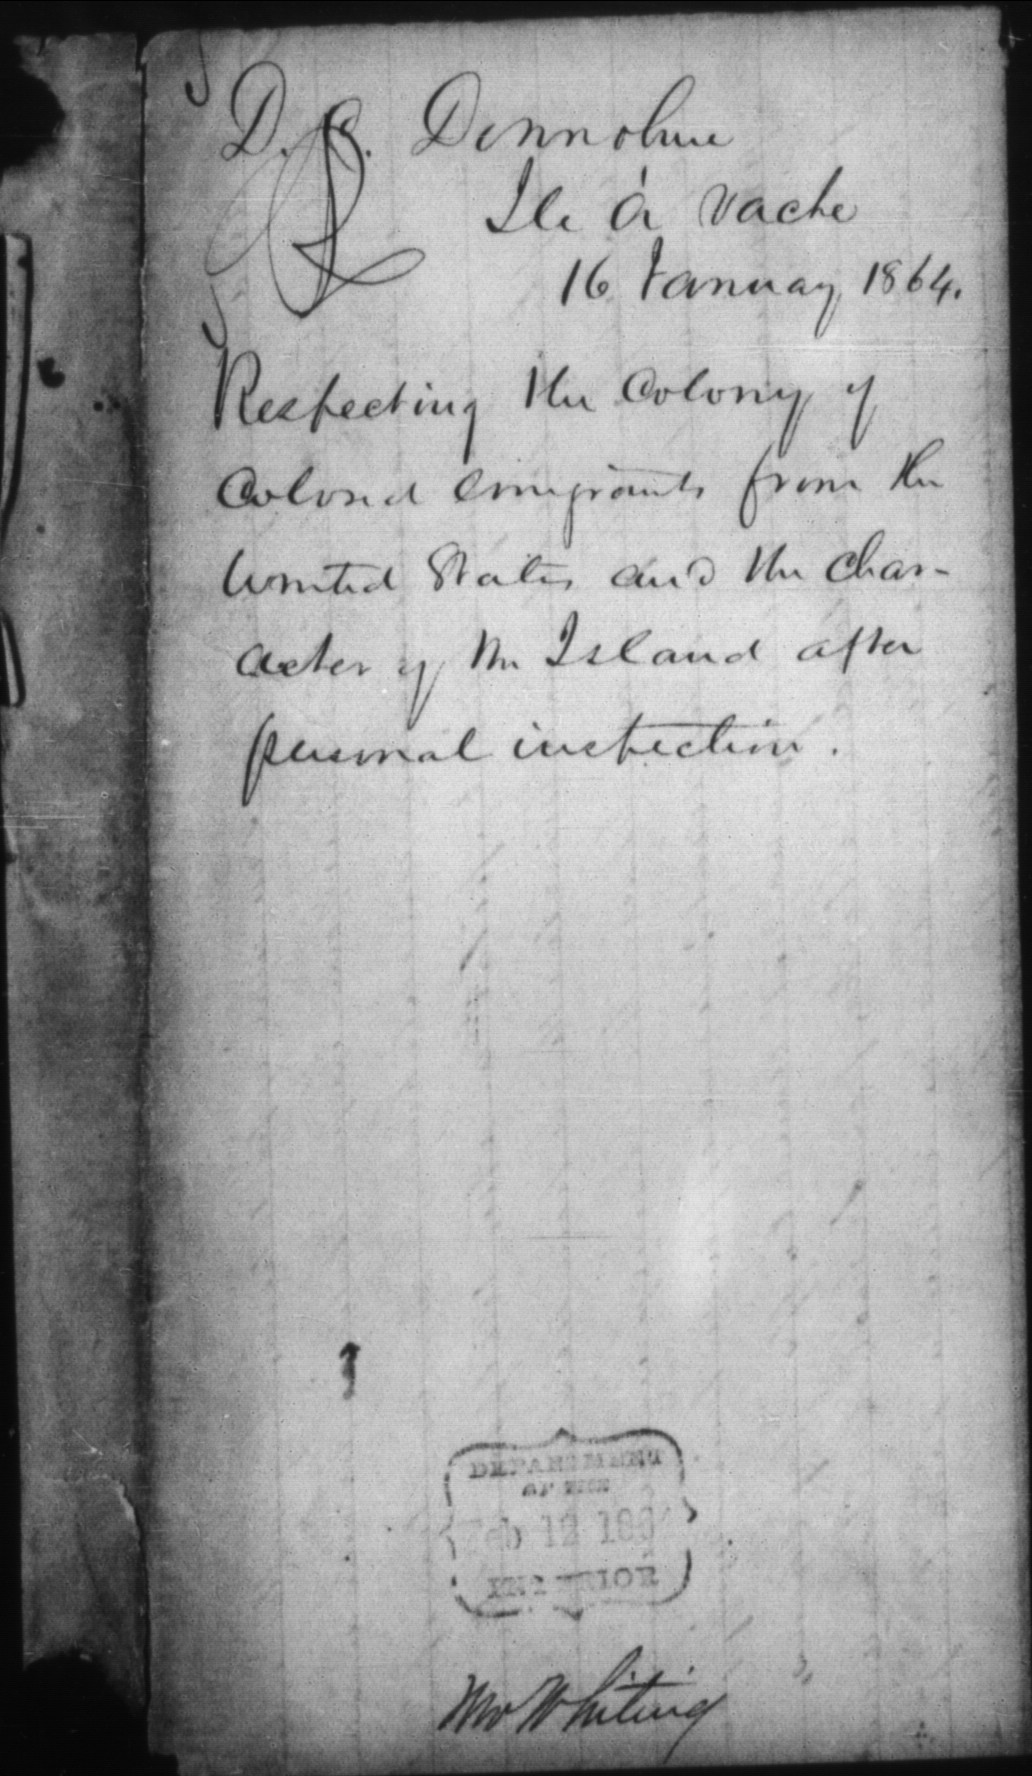 D. C. Donnohue
Ile à Vache
16 January 1864.
Respecting the Colony of
Colored emigrants from the
United States and the char-
acter of the Island after
personal inspection.
DEPARTMENT
OF THE
Feb 12 1864
INTERIOR
Mr Whiting